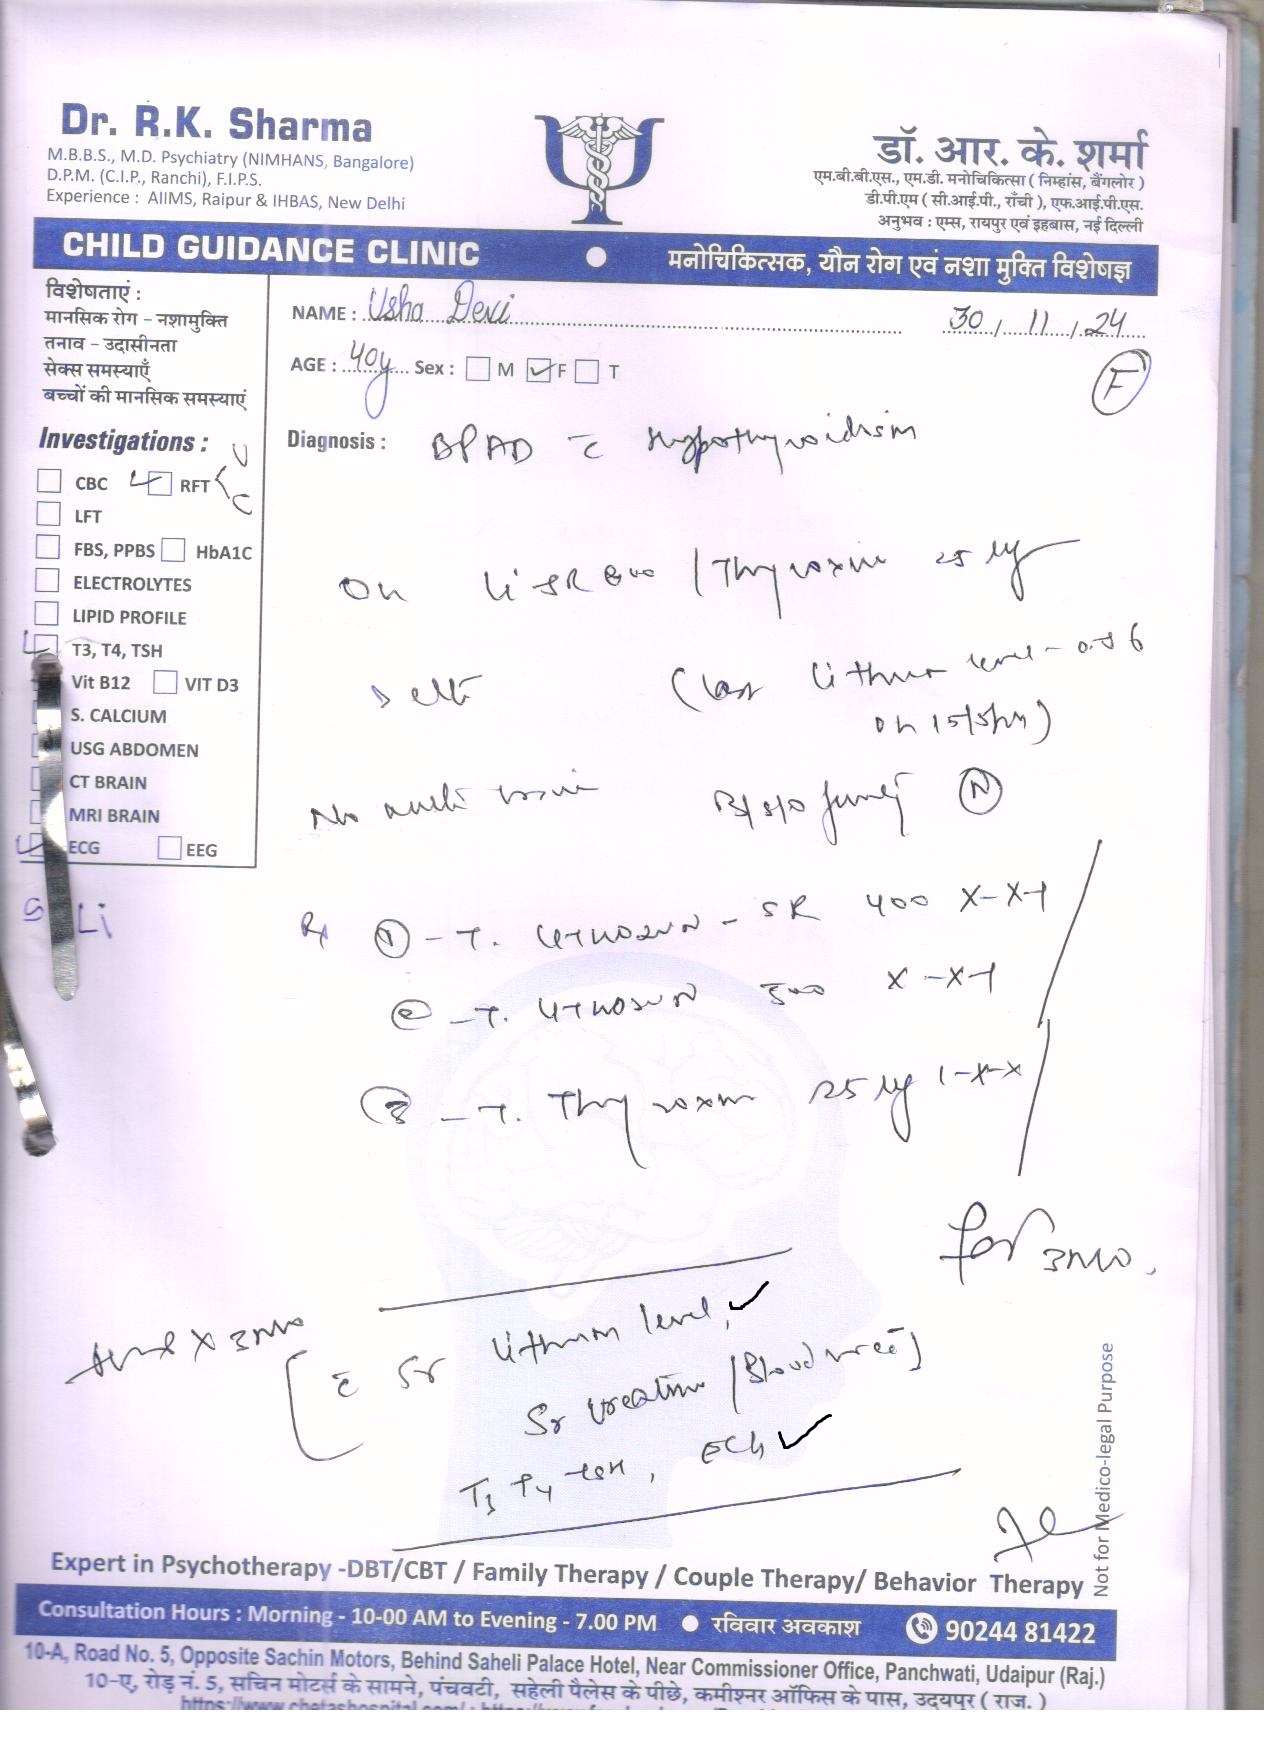 Dr. R.K. Sharma
M.B.B.S., M.D. Psychiatry (NIMHANS, Bangalore)
D.P.M. (C.I.P., Ranchi), F.I.P.S.
Experience : AIIMS, Raipur & IHBAS, New Delhi
डॉ. आर. के. शर्मा
एम.बी.बी.एस., एम.डी. मनोचिकित्सा ( निम्हांस, बैंगलोर )
डी.पी.एम ( सी.आई.पी., राँची ), एफ.आई.पी.एस.
अनुभव : एम्स, रायपुर एवं इहबास, नई दिल्ली
CHILD GUIDANCE CLINIC
मनोचिकित्सक, यौन रोग एवं नशा मुक्ति विशेषज्ञ
विशेषताएं :
मानसिक रोग – नशामुक्ति
तनाव – उदासीनता
सेक्स समस्याएँ
बच्चों की मानसिक समस्याएं
Investigations :
CBC RFT U C
LFT
FBS, PPBS HbA1C
ELECTROLYTES
LIPID PROFILE
T3, T4, TSH
Vit B12 VIT D3
S. CALCIUM
USG ABDOMEN
CT BRAIN
MRI BRAIN
ECG EEG
S Li
NAME : Usha Devi 30/11/24
AGE : 40y Sex : M F T
F
Diagnosis : BPAD c̄ Hypothyroidism
On Li SR / Thyroxine 25 µg
(last lithium level - 
on 15/5/24)
No B/S/O N
Rx 1 - T. LITHOSUN - SR 400 X-X-1
2 - T. LITHOSUN 300 X-X-1
3 - T. Thyroxin 25 µg 1-X-X
for 3 mo.
X 3 mo
c̄ Sr lithium level,
Sr creatinine / Blood urea
T3 T4 TSH, ECG
Not for Medico-legal Purpose
Expert in Psychotherapy -DBT/CBT / Family Therapy / Couple Therapy/ Behavior Therapy
Consultation Hours : Morning - 10-00 AM to Evening - 7.00 PM ● रविवार अवकाश 90244 81422
10-A, Road No. 5, Opposite Sachin Motors, Behind Saheli Palace Hotel, Near Commissioner Office, Panchwati, Udaipur (Raj.)
10-ए, रोड़ नं. 5, सचिन मोटर्स के सामने, पंचवटी, सहेली पैलेस के पीछे, कमीश्नर ऑफिस के पास, उदयपुर ( राज. )